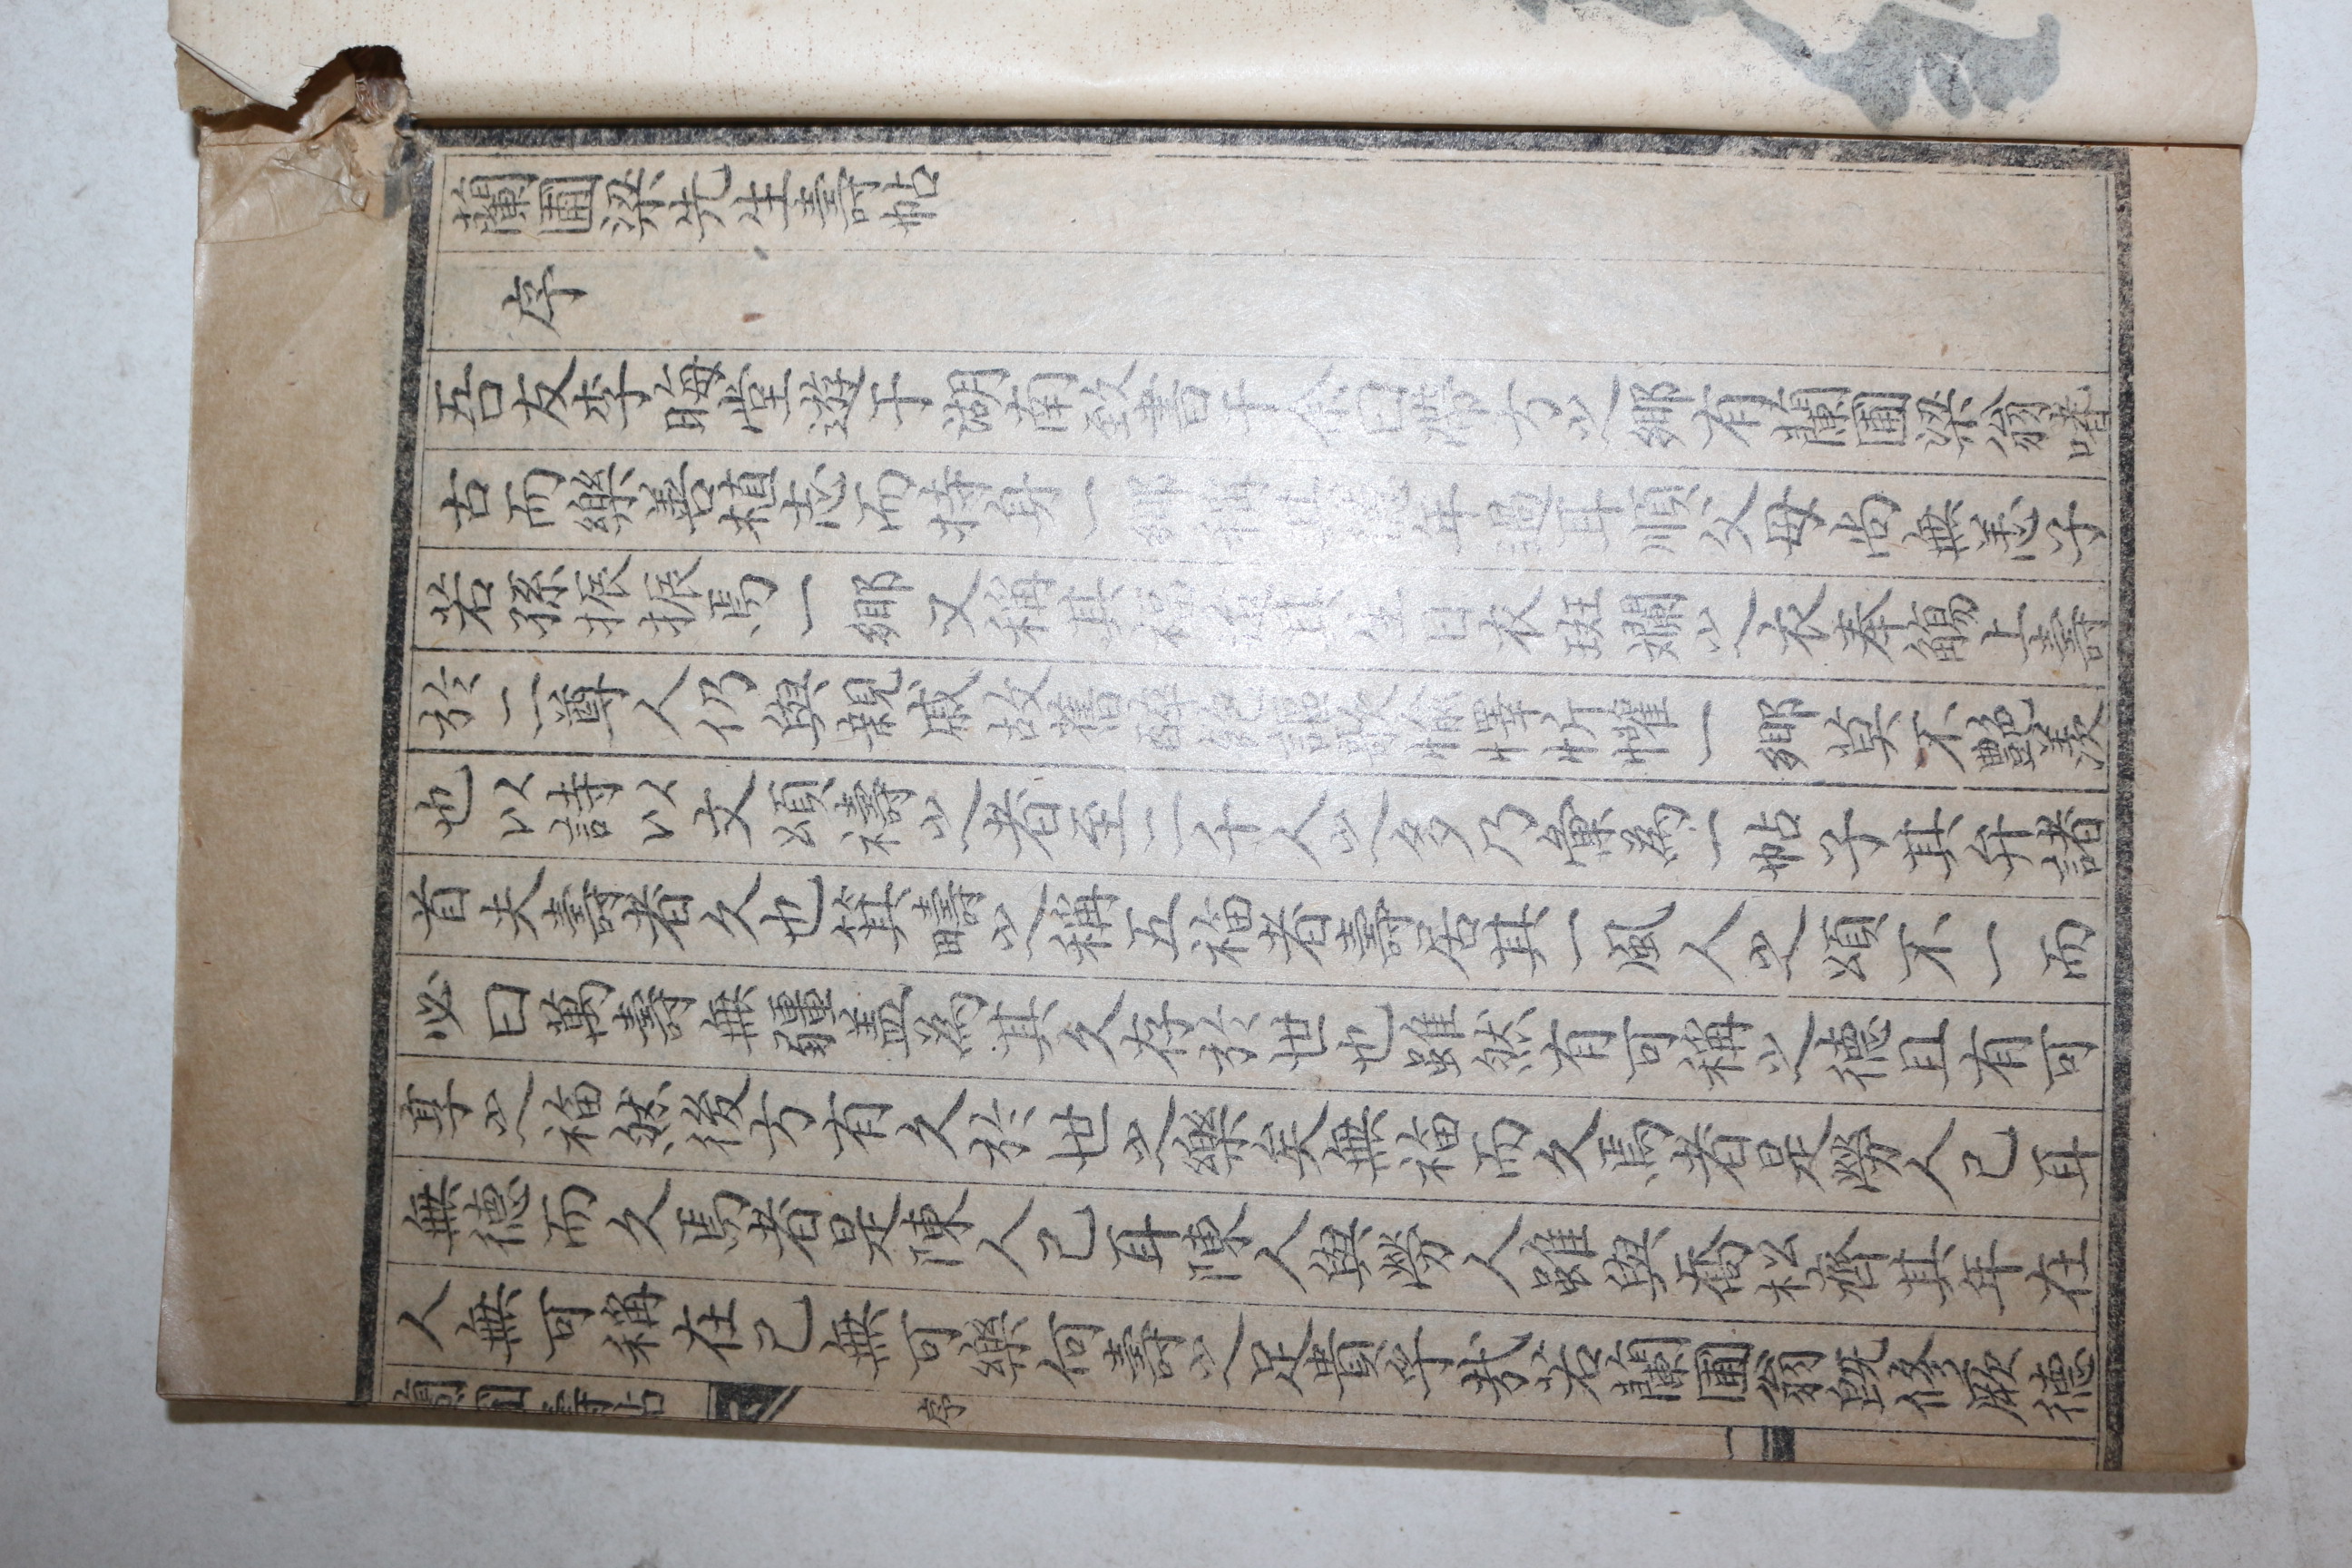 蘭圃梁先生壽帖
序
吾友李晦堂遊于湖南致書于余曰帶方之鄉有蘭圃梁翁嗜
古而樂善植志而持身一鄉稱其德年過耳順父母尚無恙子
若孫振振焉一鄉又稱其福迨其生日衣斑斕之衣奉觴上壽
於二尊人仍與親戚故舊醉飽謳歌愉懌忻懽一鄉莫不艷羨
也以詩以文頌禱之者至二千人之多乃彙為一帖子其弁諸
首夫壽者久也箕疇之稱五福者壽居其一風人之頌不一而
必曰萬壽無疆盖為其久存於世也雖然有可稱之德且有可
享之福然後方有久於世之樂矣無福而久焉者是勞人已耳
無德而久焉者是陳人已耳陳人與勞人雖與喬松齊其年在
人無可稱在己無可樂何壽之足貴乎哉若蘭圃翁旣修厥德
蘭圃壽帖
序
一